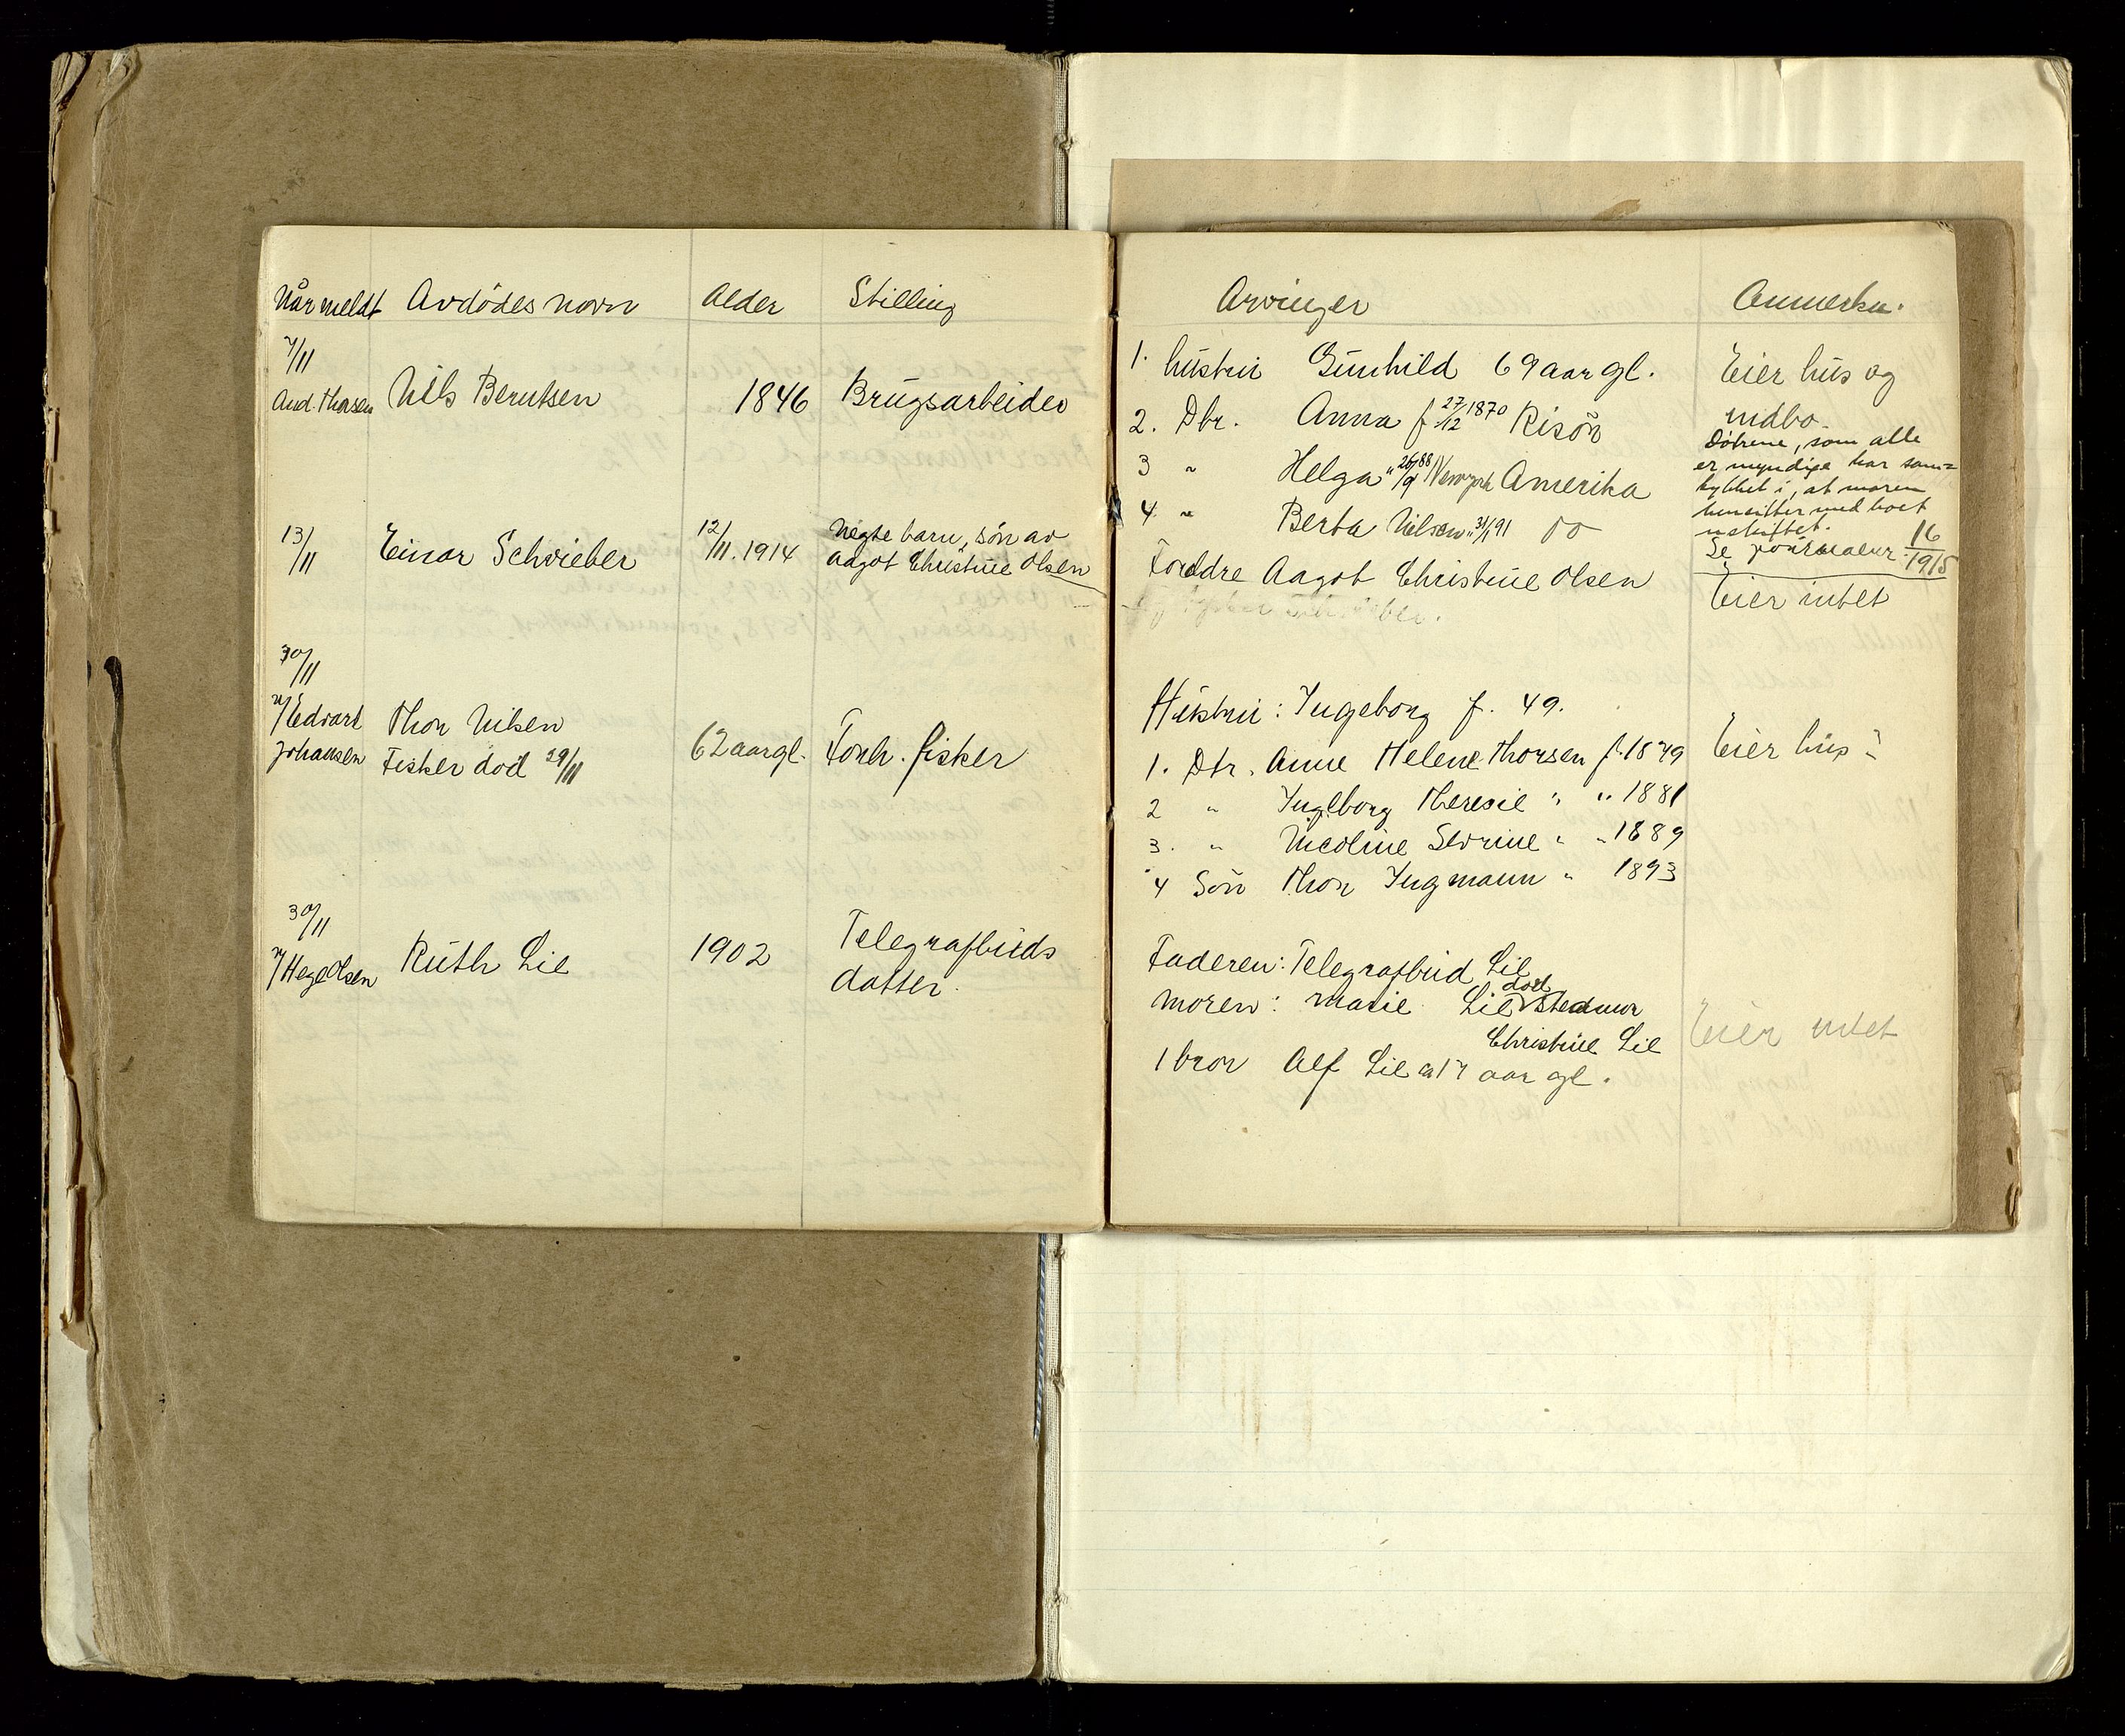 Når meldt Avdödes navn Alder Stilling
7/11
And. Thorsen Nils Berntsen 1846 Brugsarbeider
13/11 Einar Schrieber 12/11. 1914 Uegte barn, sön av
Aagot Christine Olsen
30/11
v/Edvart Thor Nilsen
Johansen Fisker död 29/11 62 aar gl. Forh. fisker
30/11
v/Hege Olsen Ruth Lie 1902 Telegrafbuds
datter.
Arvinger Anmerkn.
1. hustru Gunhild 69 aar gl. Eier hus og
indbo.
2. Dtr. Anna f 27/12 1870 Risör
Dötrene, som alle
er myndige har sam=
3 " Helga " 26/9 88 Amerika
tykket i, at moren
hensitter med boet
4. " Berta Nilsen " 31/1 91 do
uskiftet.
Se journalnr. 16/1915
Foreldre Aagot Christine Olsen
Eier intet
Hustru: Ingeborg f. 49.
1. Dtr. Anne Helene Thorsen f. 1879 Eier hus?
2 " Ingeborg Theresie " " 1881
3. " Nicoline Sevrine " " 1889
4 Sön Thor Ingmann " 1893
Faderen: Telegrafbud Lie
Moren: Marie Lie död Stedmor
Christine Lie
Eier intet
1 bror Alf Lie ca 17 aar gl.